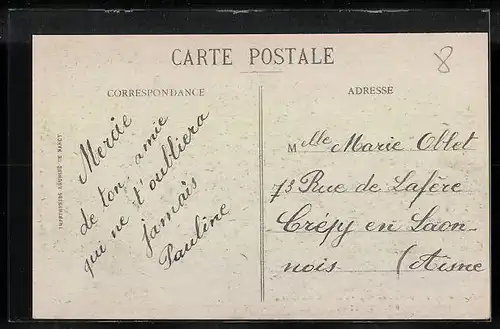 CARTE POSTALE
8
CORRESPONDANCE
ADRESSE
de ton amie
qui ne t'oubliera
jamais
Pauline
Mlle Marie Ollet
73 Rue de Lafère
Crépy en Laon-
nois (Aisne
IMPRIMERIES RÉUNIES DE NANCY